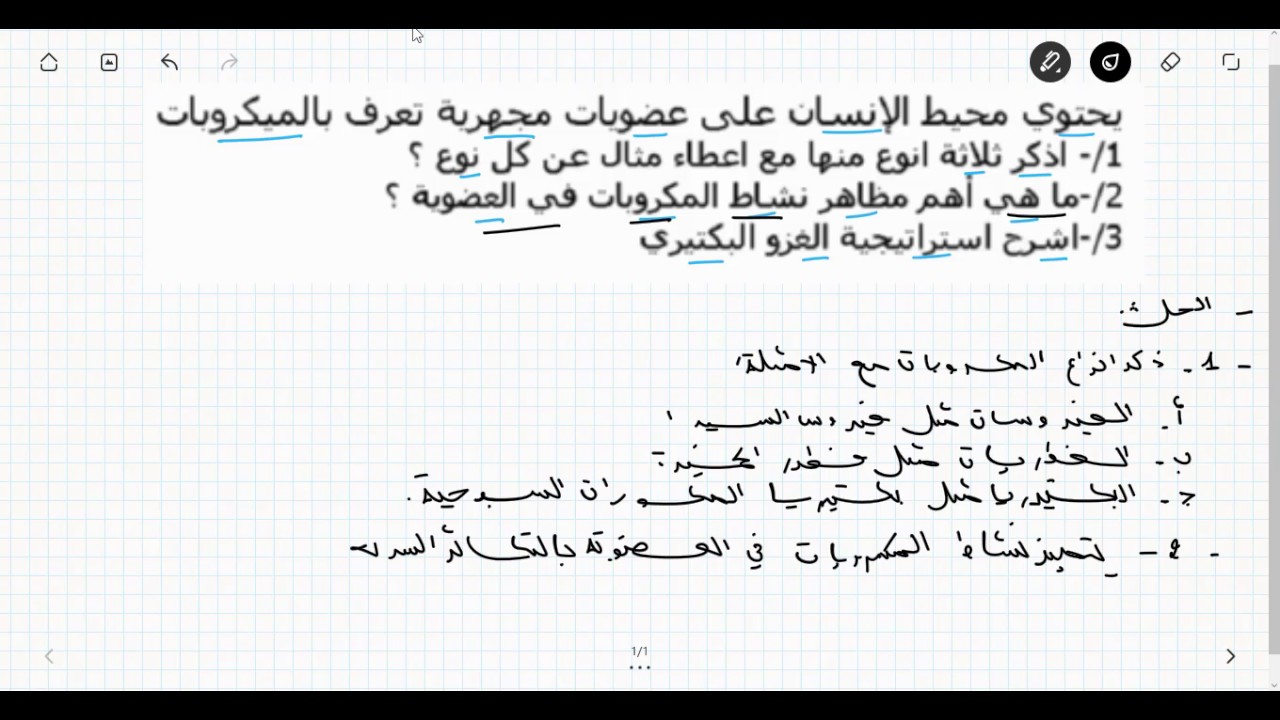 يحتوي محيط الإنسان على عضويات مجهرية تعرف بالميكروبات
1/- اذكر ثلاثة انوع منها مع اعطاء مثال عن كل نوع ؟
2/-ما هي أهم مظاهر نشاط المكروبات في العضوية ؟
3/-اشرح استراتيجية الغزو البكتيري
- الحل:
- 1. ذكر انواع المكروبات مع الامثلة:
أ. الفيروسات مثل فيروس السيدا
ب. الفطريات مثل فطر الخميرة
ج. البكتيريا مثل بكتيريا المكورات السبحية.
- 2 - يتميز نشاط المكروبات في العضوية بالتكاثر السريع
1/1